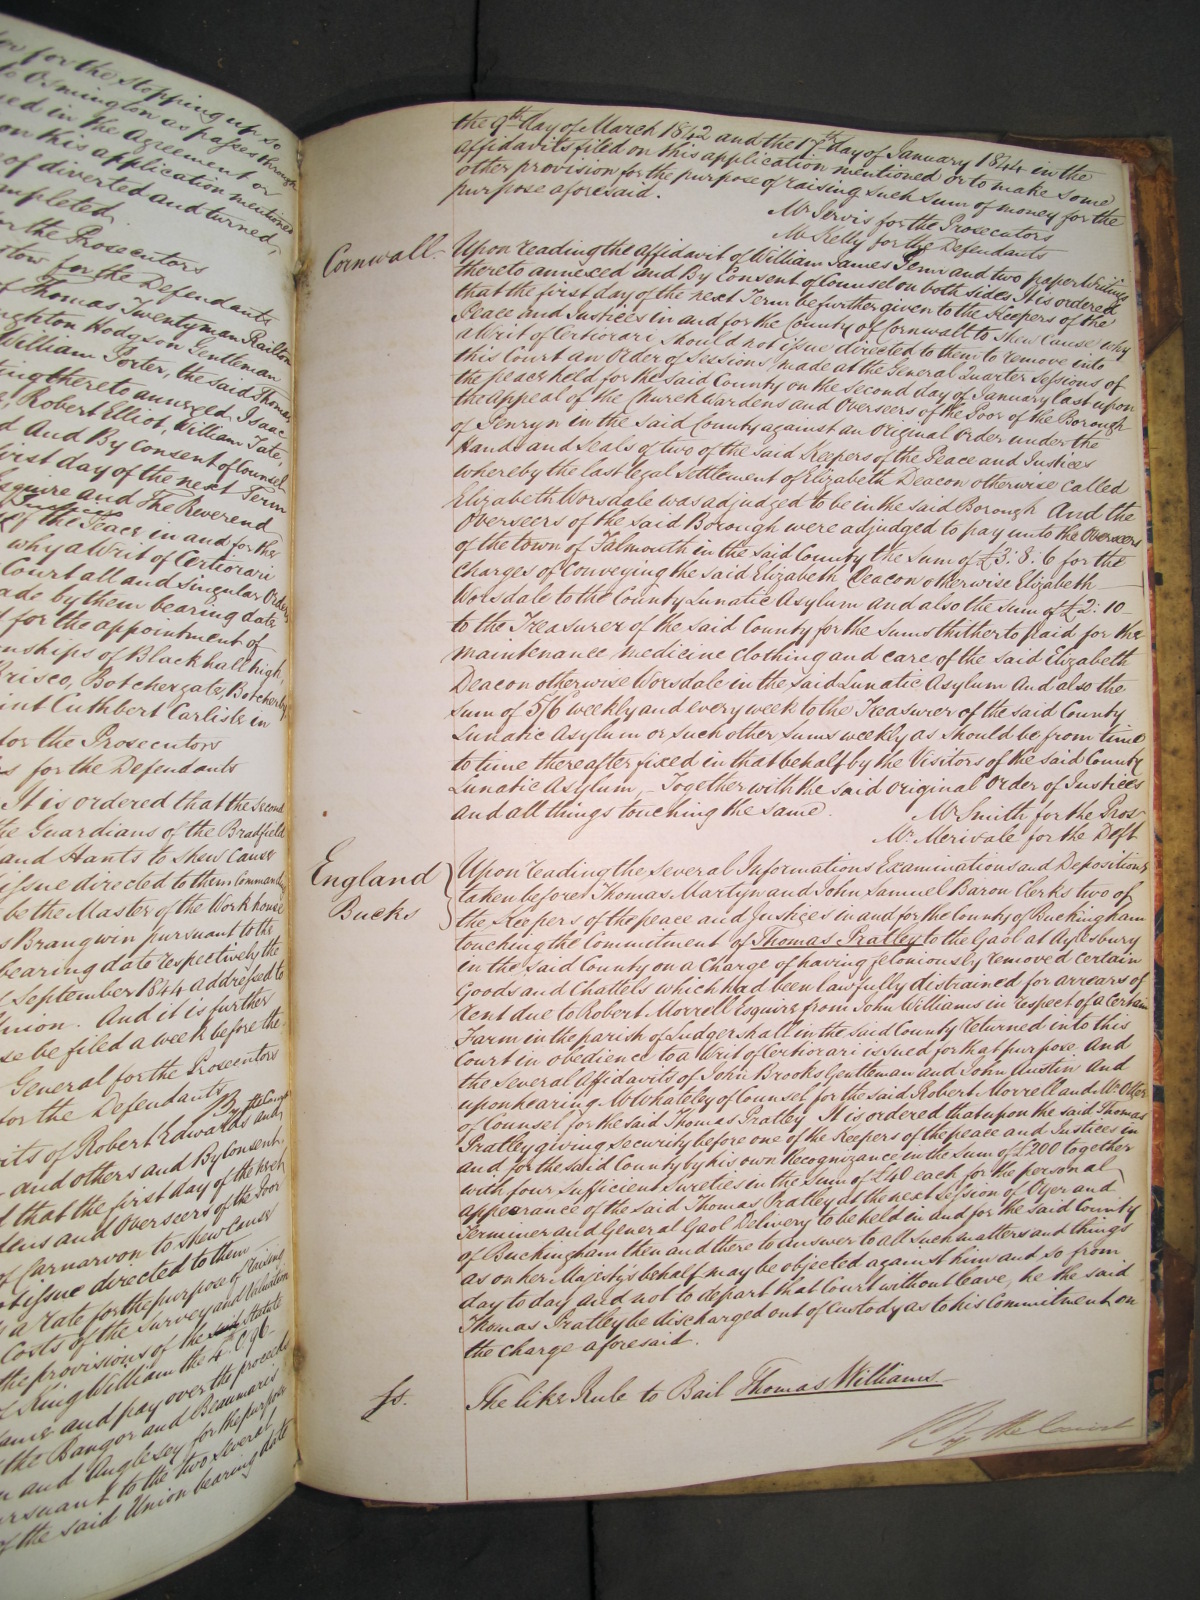 for the stopping up so
to Osmington as passes through
in the Agreement or
on this application mentioned
of diverted and turned,
completed.
for the Prosecutors
for the Defendants
of Thomas Twentyman Railton
Hodgson Gentleman
William Porter, the said Thomas
thereto annexed, Isaac
Robert Elliot, William Tate,
And By Consent of Counsel
first day of the next Term
Esquire and The Reverend
of the Peace in and for the
why a Writ of Certiorari
Court all and Singular Orders
made by them bearing date
for the appointment of
of Blackhall high,
Brisco, Botchergate, Botcherby
Saint Cuthbert Carlisle in
for the Prosecutors
for the Defendants
It is ordered that the second
the Guardians of the Bradfield
and Hants to Shew Cause
issue directed to them Commanding
be the Master of the Workhouse
Brangwin pursuant to the
bearing date respectively the
September 1844 addressed to
Union. And it is further
be filed a week before the
General for the Prosecutors
for the Defendants
By the Court
of Robert Edwards and
and others and By Consent
that the first day of the next
and Overseers of the Poor
of Carnarvon to Shew Cause
issue directed to them
a rate for the purpose of raising
Costs of the Survey and Valuation
the provisions of the Statute
King William the 4th C. 96.
same and pay over the proceeds
the Bangor and Beaumaris
and Anglesey for the purpose
pursuant to the two several
of the said Union bearing date
the 9th day of March 1842 and the 17th day of January 1844 in the
affidavits filed on this application mentioned or to make some
other provision for the purpose of raising such sum of money for the
purpose aforesaid.
Mr Jervis for the Prosecutors
Mr Kelly for the Defendants
Cornwall. Upon reading the affidavit of William James Penn and two paper Writings
thereto annexed and By Consent of Counsel on both sides It is ordered
that the first day of the next Term be further given to the Keepers of the
Peace and Justices in and for the County of Cornwall to Shew Cause why
a Writ of Certiorari should not issue directed to them to remove into
this Court an Order of Sessions made at the General Quarter Sessions of
the peace held for the said County on the second day of January last upon
the appeal of the Church Wardens and Overseers of the Poor of the Borough
of Penryn in the said County against an Original Order under the
Hands and Seals of two of the said Keepers of the Peace and Justices
whereby the last legal Settlement of Elizabeth Deacon otherwise called
Elizabeth Worsdale was adjudged to be in the said Borough And the
Overseers of the said Borough were adjudged to pay unto the Overseers
of the town of Falmouth in the said County the Sum of £3: 8: 6 for the
Charges of Conveying the said Elizabeth Deacon otherwise Elizabeth
Worsdale to the County Lunatic Asylum and also the sum of £2: 10
to the Treasurer of the said County for the sums thitherto paid for the
maintenance medicine clothing and care of the said Elizabeth
Deacon otherwise Worsdale in the said Lunatic Asylum And also the
Sum of 5/6 weekly and every week to the Treasurer of the said County
Lunatic Asylum or such other sums weekly as should be from time
to time thereafter fixed in that behalf by the Visitors of the said County
Lunatic Asylum, Together with the said original Order of Justices
and all things touching the same.
Mr Smith for the Pros
Mr Merivale for the Deft
England
Bucks
Upon reading the several Informations Examinations and Depositions
taken before Thomas Martyn and John Samuel Baron Clerks two of
the Keepers of the peace and Justices in and for the County of Buckingham
touching the Commitment of Thomas Pratley to the Gaol at Aylesbury
in the said County on a Charge of having feloniously removed certain
Goods and Chattels which had been lawfully distrained for arrears of
rent due to Robert Morrell Esquire from John Williams in respect of a Certain
Farm in the parish of Ludgershall in the said County returned into this
Court in obedience to a Writ of Certiorari issued for that purpose And
the several Affidavits of John Brooks Gentleman and John Austin And
upon hearing Mr Whateley of Counsel for the said Robert Morrell and Mr Otter
of Counsel for the said Thomas Pratley It is ordered that upon the said Thomas
Pratley giving security before one of the Keepers of the peace and Justices in
and for the said County by his own Recognizance in the sum of £200 together
with four sufficient sureties in the sum of £40 each for the personal
appearance of the said Thomas Pratley at the next Session of Oyer and
Terminer and General Gaol Delivery to be held in and for the said County
of Buckingham then and there to answer to all such matters and things
as on her Majesty's behalf may be objected against him and so from
day to day and not to depart that Court without leave, he the said
Thomas Pratley be discharged out of Custody as to his Commitment on
the charge aforesaid.
fs. The like Rule to Bail Thomas Williams
By the Court